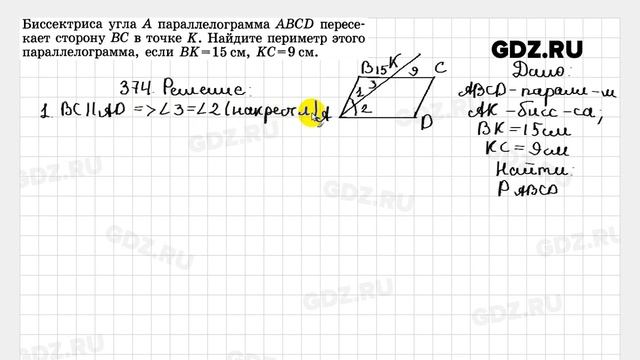 Биссектриса угла A параллелограмма ABCD пересе-
кает сторону BC в точке K. Найдите периметр этого
параллелограмма, если BK=15 см, KC=9 см.
GDZ.RU
374. Решение:
1. BC∥AD => ∠3=∠2 (накрест л)
B 15 K 9 C
1 3
2
A D
Дано:
ABCD - парал-м
AK - бисс-са;
BK = 15см
KC = 9см
Найти:
P ABCD
GDZ.RU
GDZ.RU
GDZ.RU
GDZ.RU
GDZ.RU
GDZ.RU